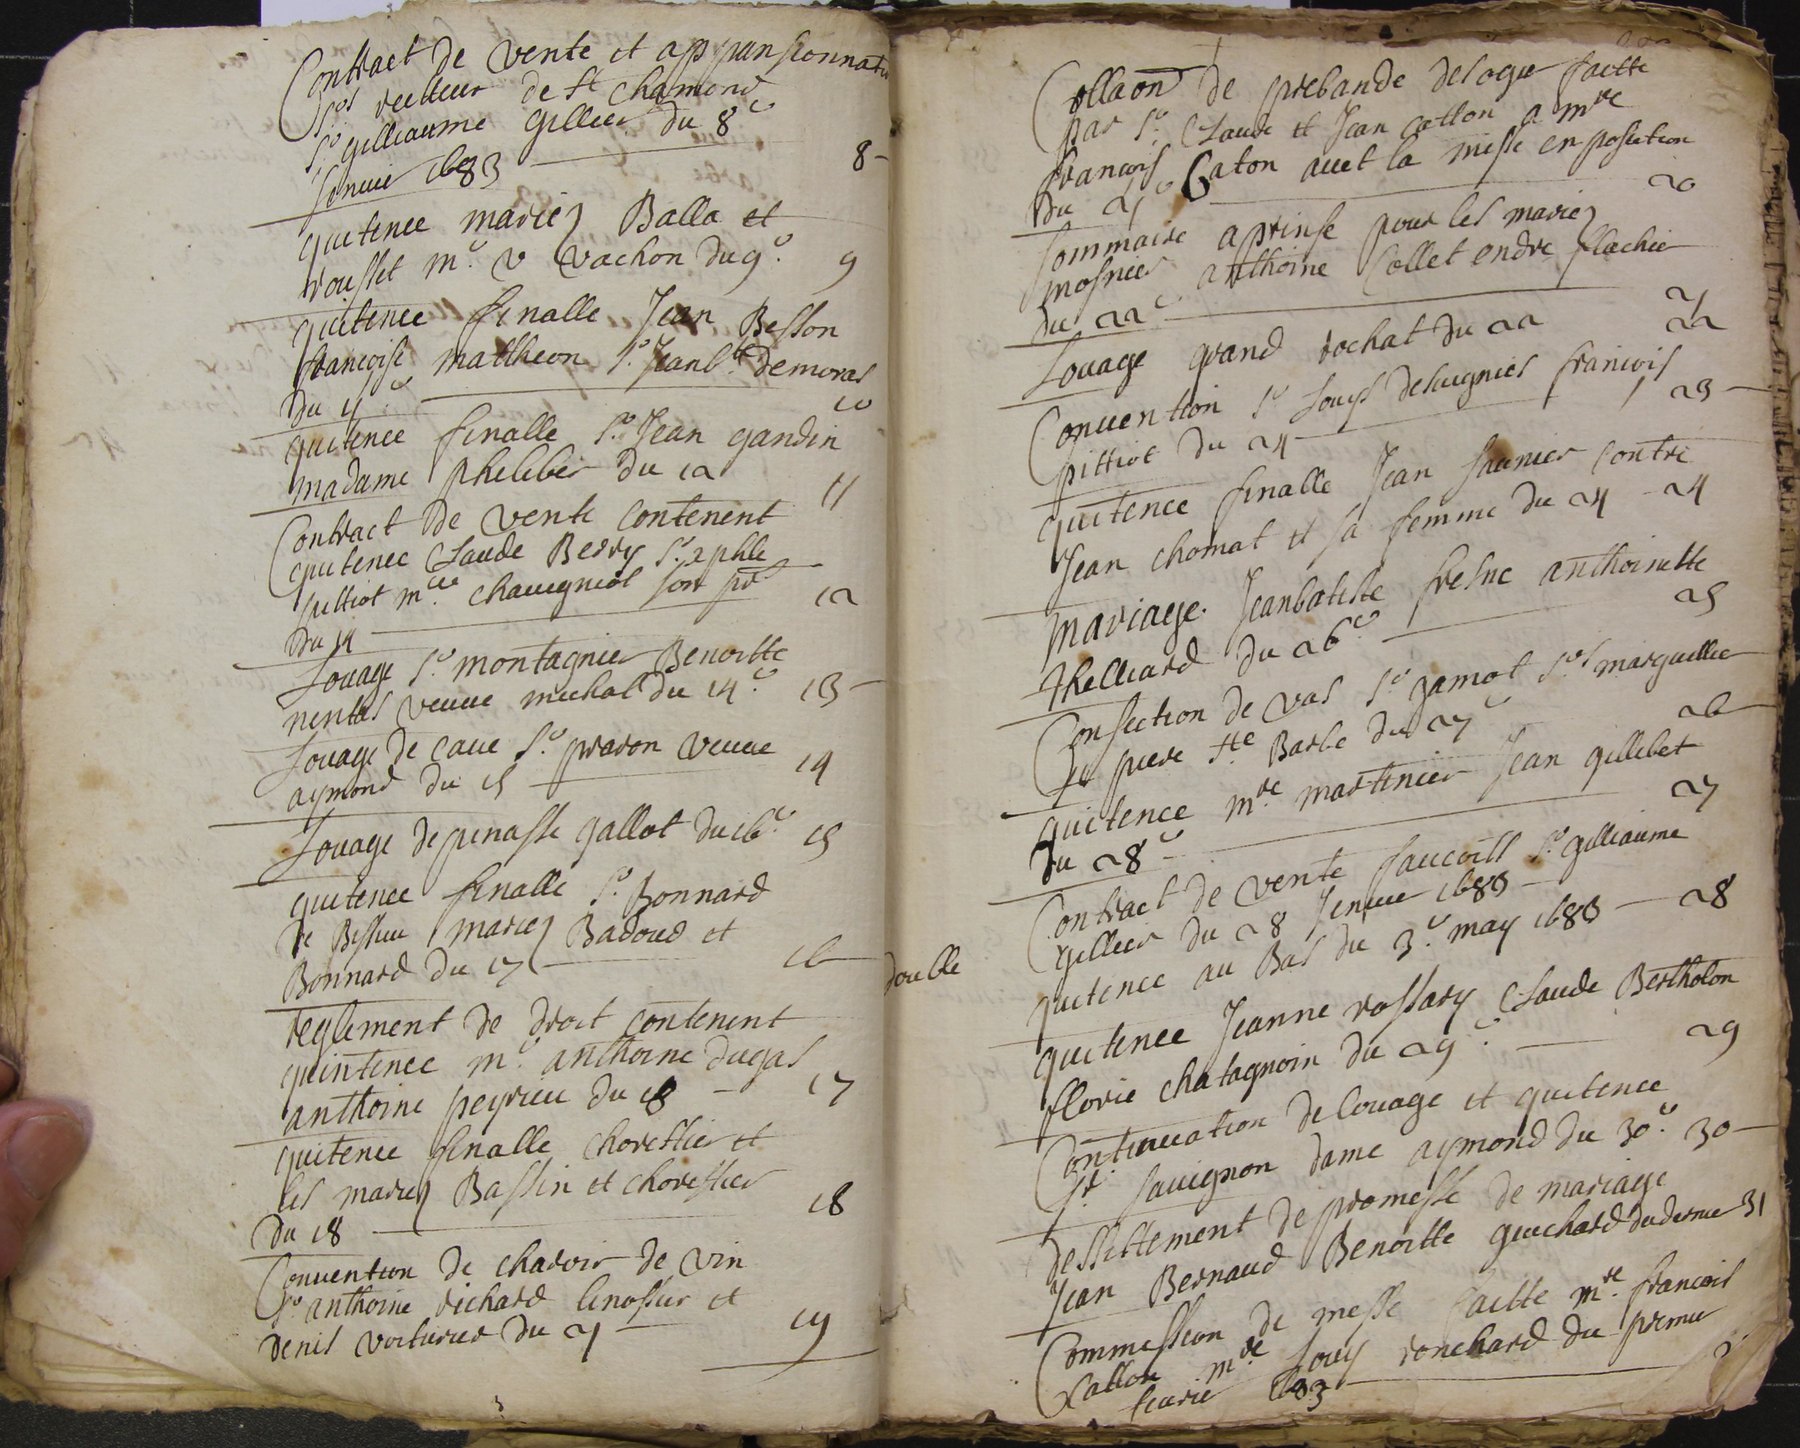 Contract de vente et appansionnation
Srs recteurs de St Chamond
Sr gilliaume gillier du 8e
Janvier 1683 8
quitence mariez Balla et
rousset me v vachon du 9e 9
quitence finalle Jean Besson
françoise mattheon Sr Jeanbte demoras
du 11e 10
quitence finalle Sr Jean gandin
madame phelibes du 12 11
Contract de vente contenent
quitence Claude Berry Sr
me Chauvigniol
du 14 12
Louage Sr montagnier Benoitte
veuve michal du 14e 13
Louage de cave Sr praron veuve
aymond du 15 14
Louage depinasse gallot du 16e 15
quitence finalle Sr Bonnard
de mariez Badoud et
Bonnard du 17 16
reglement de droit contenent
quintence me anthoine dugas
anthoine peyrieu du 18 17
quitence finalle chorestier et
les mariez Bassin et chorestier
du 18 18
Convention de charoir de vin
Sr anthoine richard linossier et
denis voiturier du 21 19
Collaon de prebande
par Sr Claude et Jean catton a mre
françois Caton avet la mise en position
du 21e 20
Sommaire aprinse pour les mariez
mosnier anthoine Collet endre flachier
du 22e 21
Louage grand rochat du 22 22
Convention Sr Louys desuignies francois
pittiot du 24 23
quitence finalle Jean saunier contre
Jean chomat et sa femme du 24 24
mariage Jeanbatiste fresne anthoinette
thelliard du 26e 25
Confection de vas Sr jamot Srs marguillier
Ste Barbe du 27e 26
quitence mre martinier Jean gillibet
du 28e 27
Contract de vente Sr gilliaume
gillier du 28 Jenvier 1683
double quitence au Bas du 3e may 1683 28
quitence Jeanne rossary Claude Bertholon
florie chatagnoin du 29e 29
Continuation de louage et quitence
Sr sauvignon dame aymond du 30e 30
dessittement de promesse de mariage
Jean Bernaud Benoitte guichard du dernier 31
Commession de messe faitte mre francois
Catton mre Louys ronchard du premier
fevrier 1683